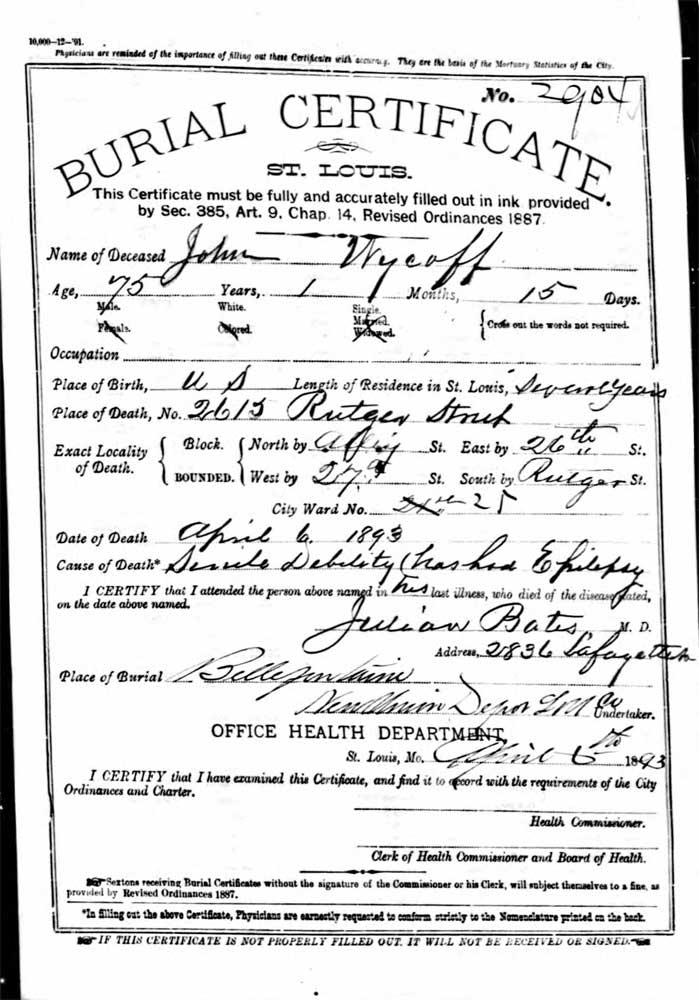 10,000-12-'91.
Physicians are reminded of the importance of filling out these Certificates with accuracy. They are the basis of the Mortuary Statistics of the City.
No. 2904
BURIAL CERTIFICATE.
ST. LOUIS.
This Certificate must be fully and accurately filled out in ink provided
by Sec. 385, Art. 9, Chap. 14, Revised Ordinances 1887.
Name of Deceased John Wycoff
Age, 75 Years, 1 Months, 15 Days.
Male. White. Single.
Married.
Female. Colored. Widowed. Cross out the words not required.
Occupation
Place of Birth, U S Length of Residence in St. Louis, Several Years
Place of Death, No. 2615 Rutger Street
Exact Locality of Death. Block. BOUNDED. North by St. East by 26th St.
West by 27th St. South by Rutger St.
City Ward No. 25
Date of Death April 6. 1893
Cause of Death* Senile Debility (has had Epilepsy
I CERTIFY that I attended the person above named in his last illness, who died of the disease stated,
on the date above named.
Julian Bates, M. D.
Address, 2836 Lafayette
Place of Burial Bellefontaine
New Union Depot Co Undertaker.
OFFICE HEALTH DEPARTMENT,
St. Louis, Mo. April 1893
I CERTIFY that I have examined this Certificate, and find it to accord with the requirements of the City
Ordinances and Charter.
Health Commissioner.
Clerk of Health Commissioner and Board of Health.
Sextons receiving Burial Certificates without the signature of the Commissioner or his Clerk, will subject themselves to a fine, as
provided by Revised Ordinances 1887.
*In filling out the above Certificate, Physicians are earnestly requested to conform strictly to the Nomenclature printed on the back.
IF THIS CERTIFICATE IS NOT PROPERLY FILLED OUT, IT WILL NOT BE RECEIVED OR SIGNED.